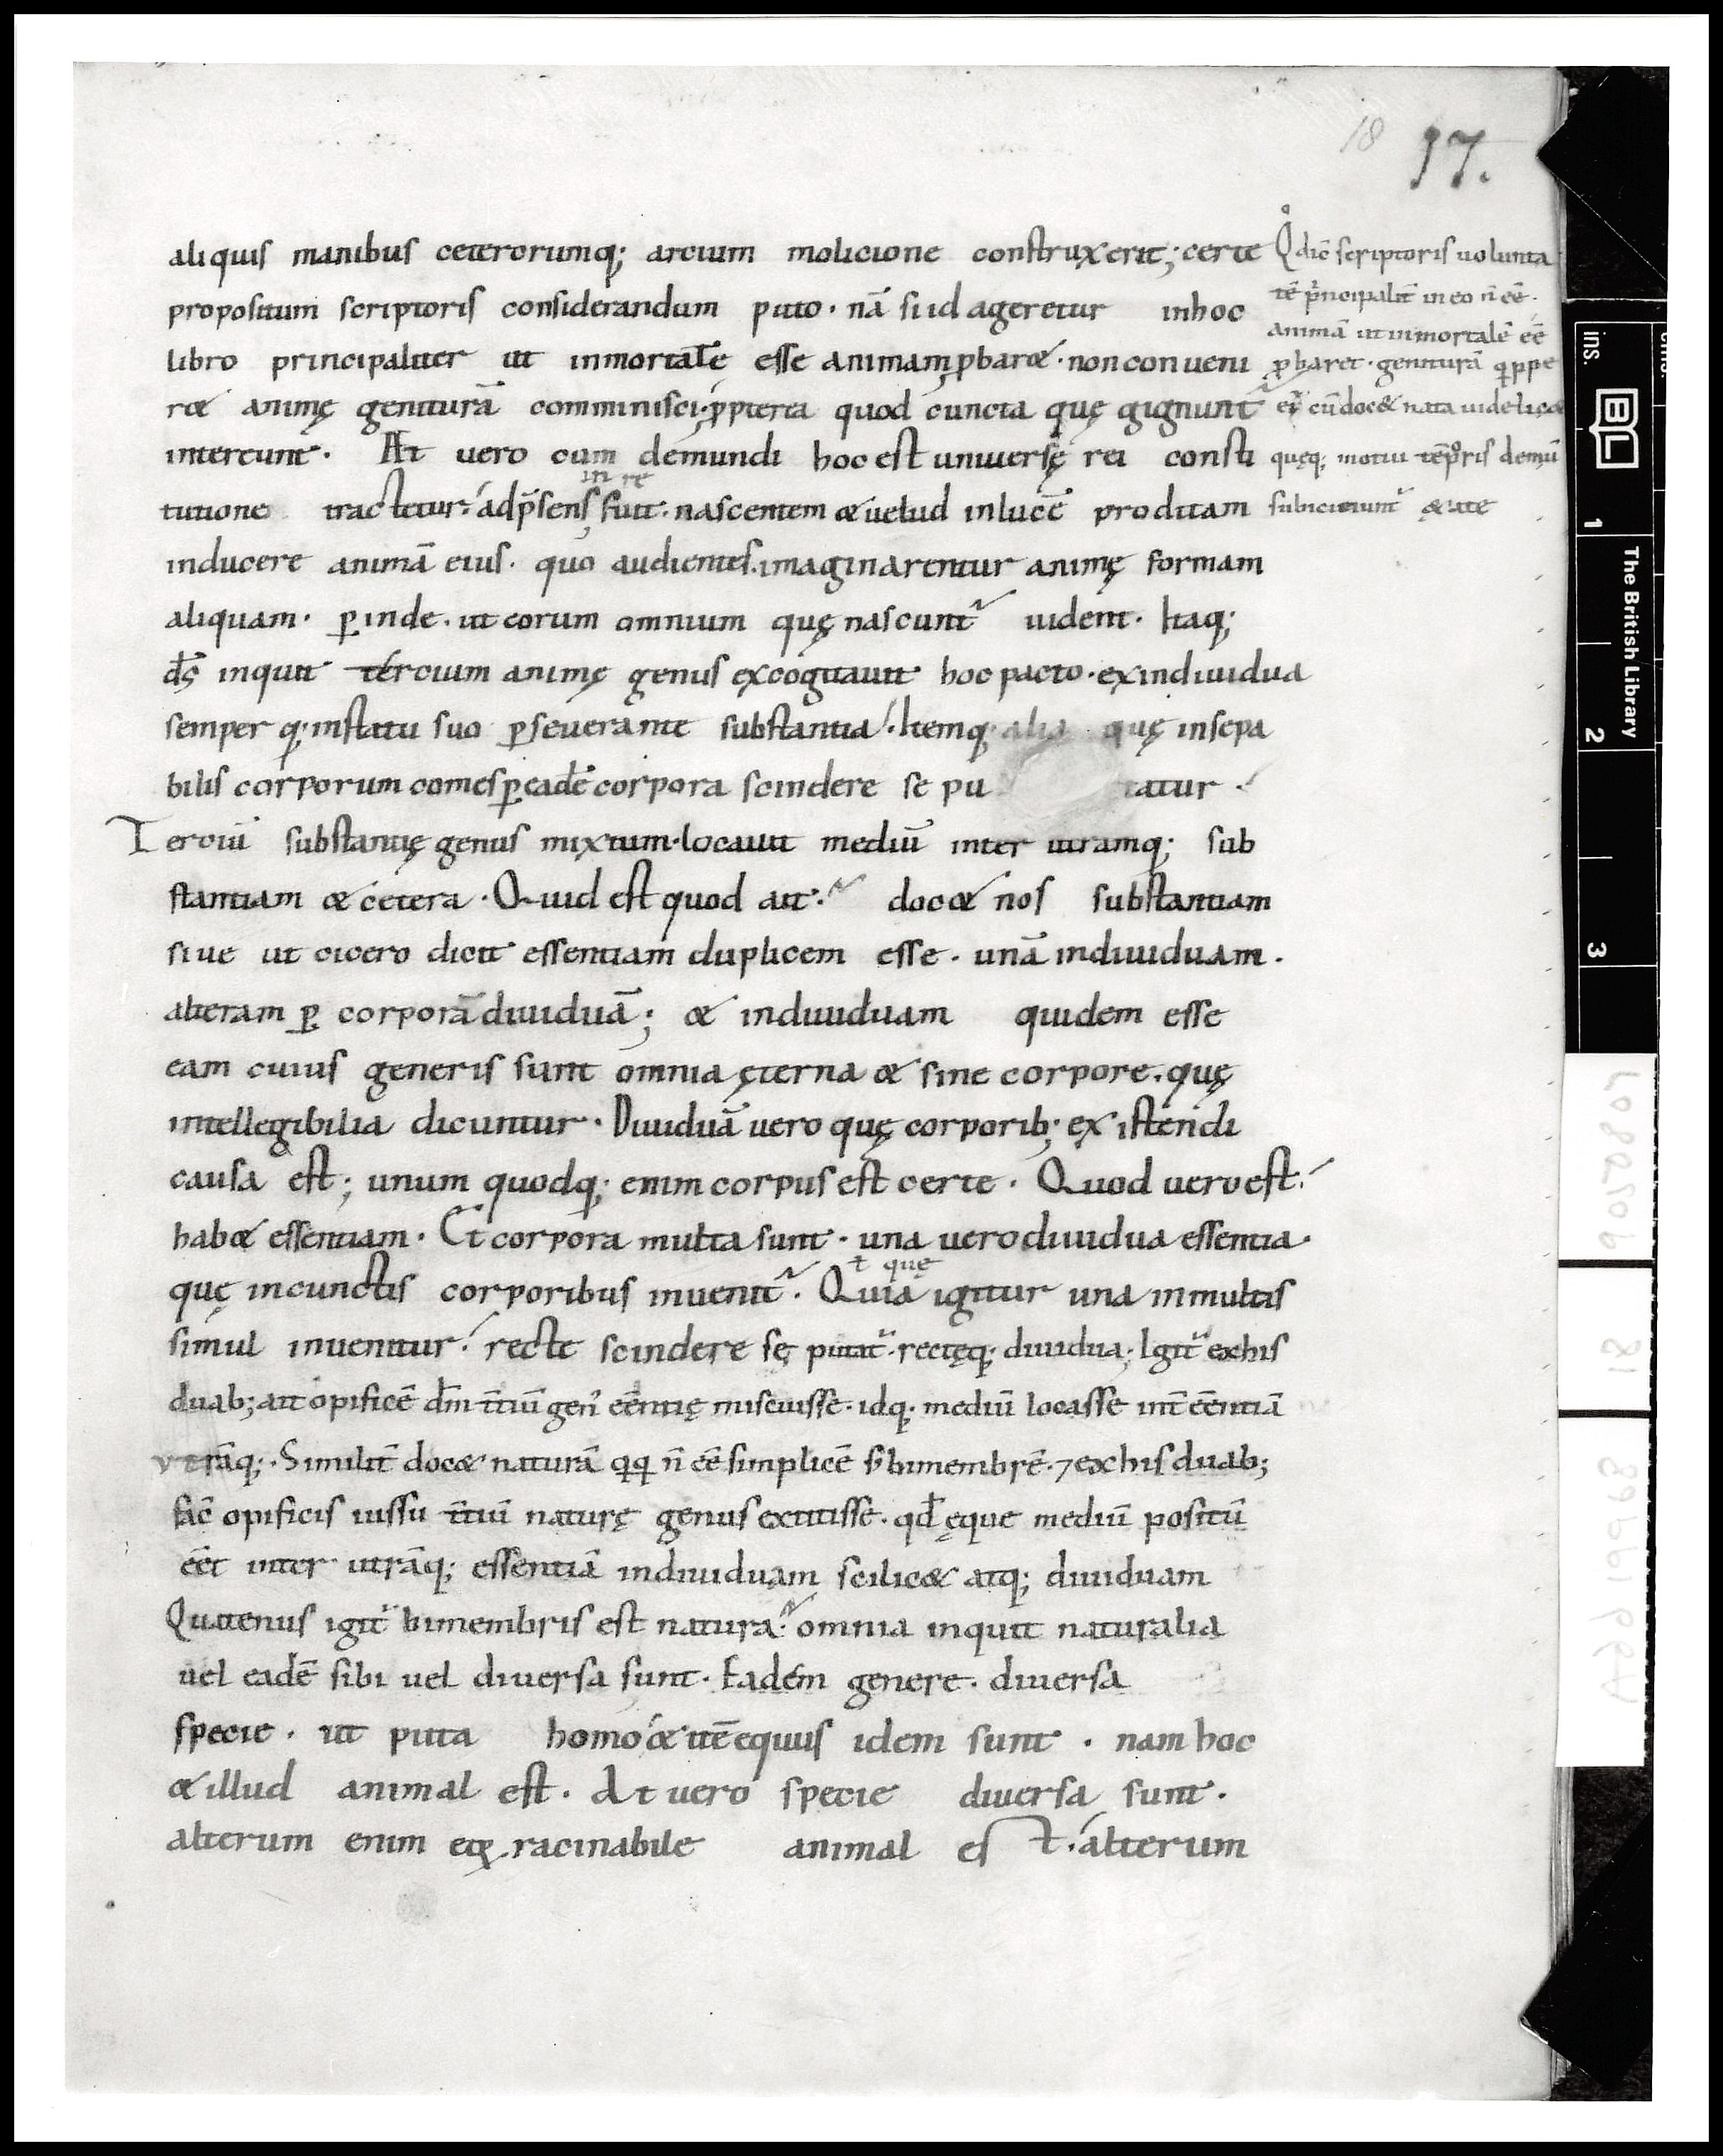 18 17.
aliquis manibus ceterorumq; arcium molicione construxerit; certe
propositum scriptoris considerandum puto · nā si id ageretur inhoc
libro principaliter ut inmortale esse animam ꝓbaret · non conueni
ret animę geniturā comminisci · ꝓpterea quod cuncta quę gignunt᷑
intereunt · At uero cum demundi hoc est uniuersę rei consti
in re
tutione tractetur · ad p̄sens fuit · nascentem et uelud inlucē proditam
inducere animā eius · quo audientes · imaginarentur animę formam
aliquam · ꝑinde · ut eorum omnium quę nascunt᷑ uident · Itaq;
d̄s inquit tercium animę genus excogitauit hoc pacto · exindiuidua
semper q; instatu suo ꝑseuerante substantia · Itemq; alia quę insepa
bilis corporum comes ꝑ eadē corpora scindere se pu tatur ·
Terciū substantię genus mixtum · locauit mediū inter utramq; sub
stantiam et cetera · Quid est quod ait · docet nos substantiam
siue ut cicero dicit essentiam duplicem esse · unā indiuiduam ·
alteram ꝑ corporā diuiduā; et indiuiduam quidem esse
eam cuius generis sunt omnia ęterna et sine corpore · quę
intellegibilia dicuntur · Diuiduā uero quę corporib; existendi
causa est; unum quodq; enim corpus est certe · Quod uero est ·
habet essentiam · Et corpora multa sunt · una uero diuidua essentia ·
ꝉ quę
quę incunctis corporibus inuenit᷑ · Quia igitur una inmultis
simul inuenitur · recte scindere sę putat᷑ · rectęq; diuidua · Igit᷑ exhis
duab; ait opificē dm̄ t̄tiū gen̄ ēentię miscuisse · idq; mediū locasse int̄ ēentiā
utrāq; · Similit̄ docet naturā qq n̄ ēe simplicē s; bimembrē · ⁊ exhis duab;
hāc opificis iussu t̄tiū naturę genus extitisse · qd̄ ęque mediū positū
ēet inter utrāq; essentiā indiuiduam scilicet atq; diuiduam
Quatenus igit᷑ bimembris est natura · omnia inquit naturalia
uel eadē sibi uel diuersa sunt · Eadem genere · diuersa
specie · ut puta homo et itē equus idem sunt · nam hoc
et illud animal est · At uero specie diuersa sunt ·
alterum enim ex racinabile animal est · alterum
Qͦ dic̄ scriptoris uolunta
tē p̄ncipalit̄ in eo n̄ ēe ·
animā ut inmortalē ēe
ꝓbaret · geniturā qippe
ei᷑ cū docet nata uidelicet
quęq; motui tēporis demū
subiciunt᷑ et ate
ins.
BL
The British Library
1
2
3